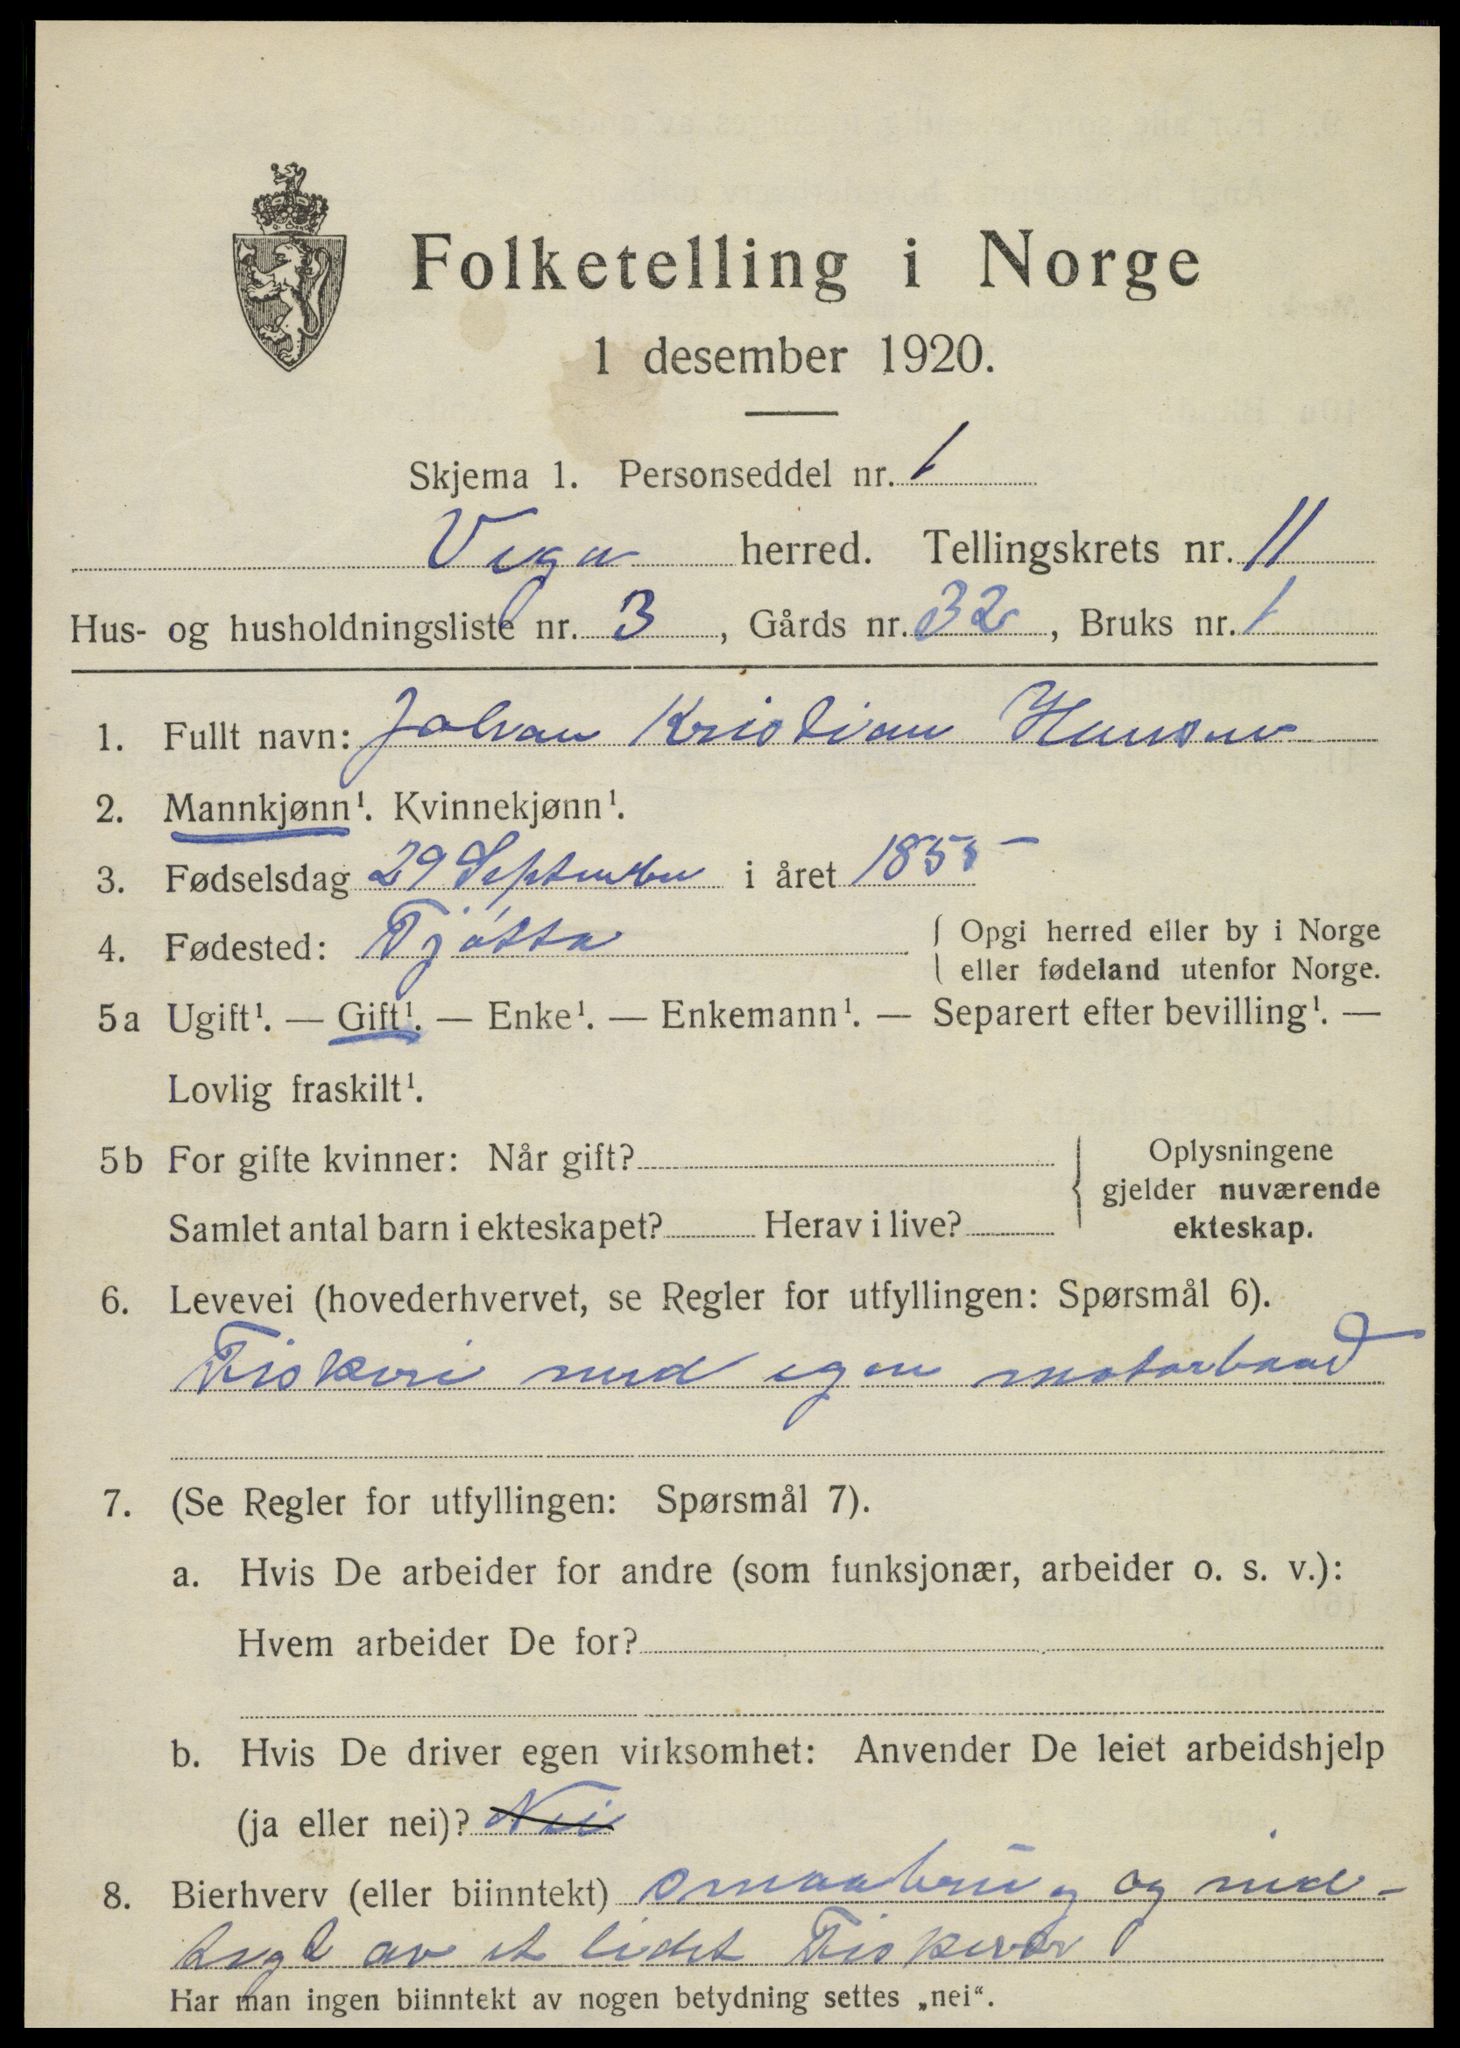 Folketelling i Norge
1 desember 1920.
Skjema 1. Personseddel nr. 1
Vega herred. Tellingskrets nr. 11
Hus- og husholdningsliste nr. 3, Gårds nr. 32, Bruks nr. 1
1. Fullt navn: Johan Kristian Hansen
2. Mannkjønn¹. Kvinnekjønn¹.
3. Fødselsdag 29 September i året 1855
4. Fødested: Tjøtta { Opgi herred eller by i Norge
eller fødeland utenfor Norge.
5a Ugift¹. — Gift¹. — Enke¹. — Enkemann¹. — Separert efter bevilling¹. —
Lovlig fraskilt¹.
5b For gifte kvinner: Når gift? { Oplysningene
gjelder nuværende
ekteskap.
Samlet antal barn i ekteskapet? Herav i live?
6. Levevei (hovederhvervet, se Regler for utfyllingen: Spørsmål 6).
Fiskeri med egen motorbaad
7. (Se Regler for utfyllingen: Spørsmål 7).
a. Hvis De arbeider for andre (som funksjonær, arbeider o. s. v.):
Hvem arbeider De for?
b. Hvis De driver egen virksomhet: Anvender De leiet arbeidshjelp
(ja eller nei)? Nei
8. Bierhverv (eller biinntekt) smaabrug og ind-
tegt av et lidet Fiskevær
Har man ingen biinntekt av nogen betydning settes „nei“.